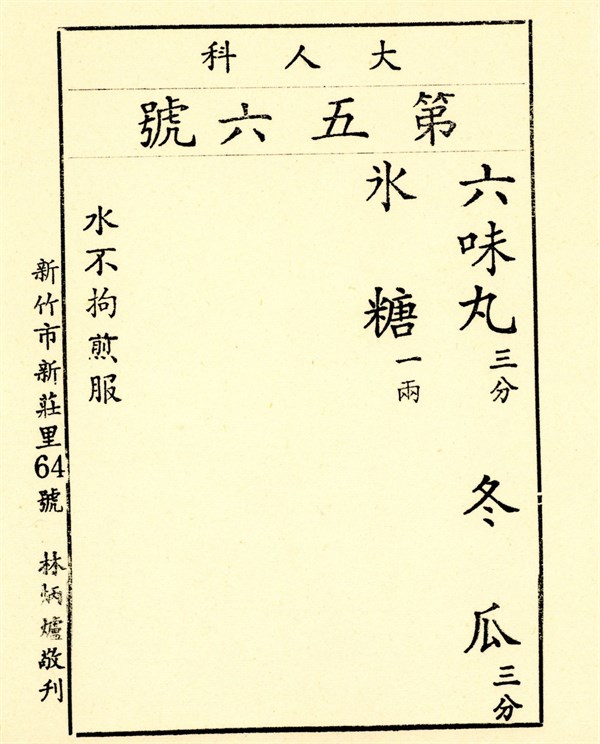 大人科
第五六號
六味丸三分 冬瓜三分
氷糖一兩
水不拘煎服
新竹市新莊里64號 林炳爐敬刊